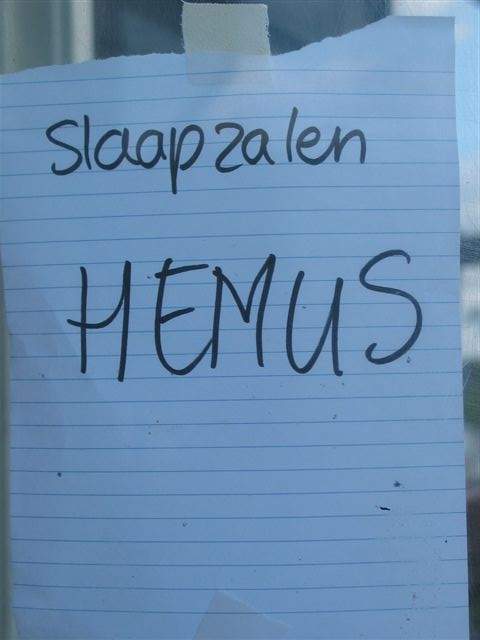 Slaapzalen
HEMUS